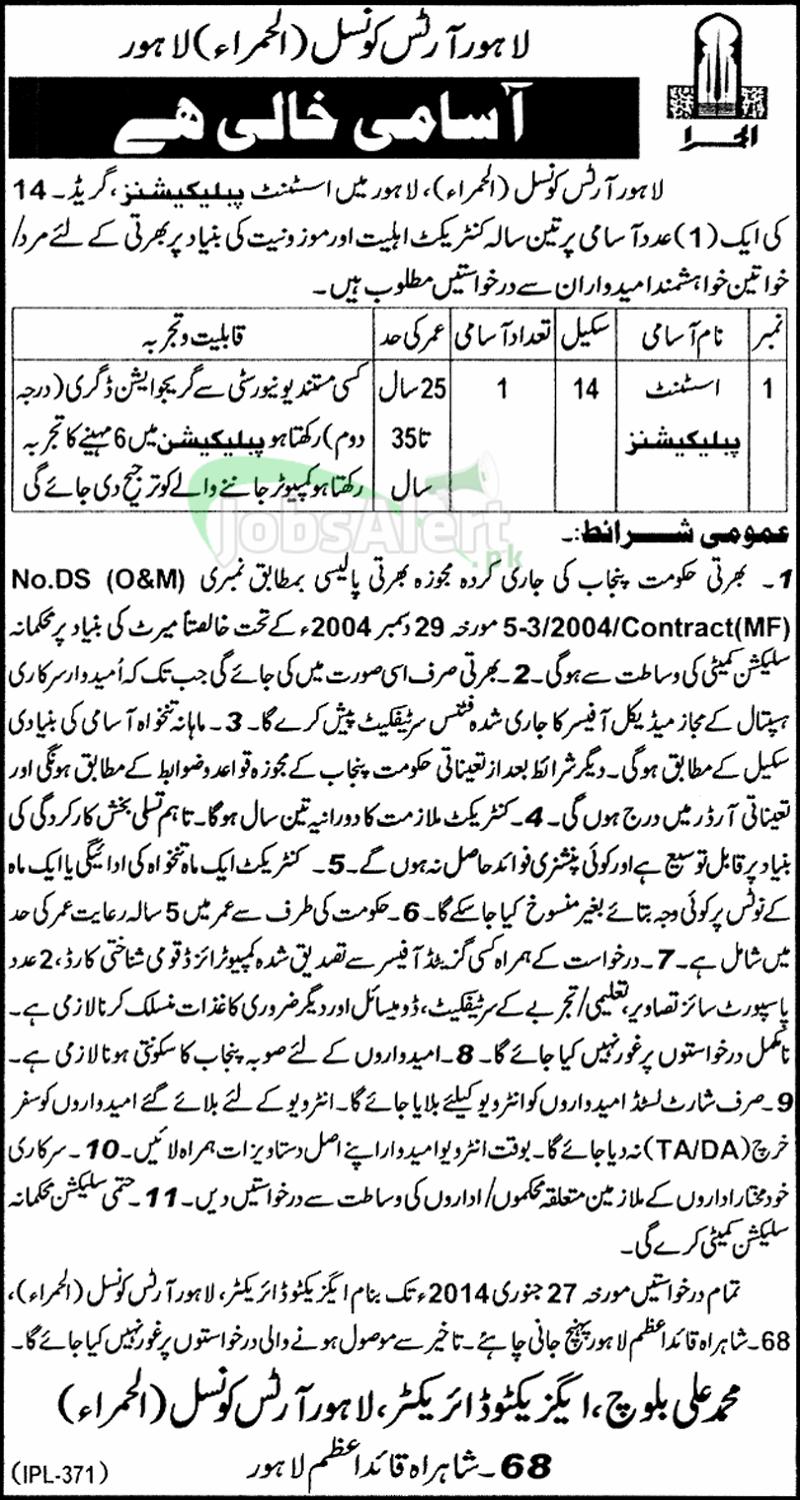 لاہور آرٹس کونسل (الحمراء) لاہور
الحمرا
آسامی خالی ھے
لاہور آرٹس کونسل (الحمراء)، لاہور میں اسسٹنٹ پبلیکیشنز، گریڈ۔ 14
کی ایک (1) عدد آسامی پر تین سالہ کنٹریکٹ اہلیت اور موزونیت کی بنیاد پر بھرتی کے لئے مرد/
خواتین خواہشمند امیدواران سے درخواستیں مطلوب ہیں۔
نمبر نام آسامی سکیل تعداد آسامی عمر کی حد قابلیت و تجربہ
1 اسسٹنٹ 14 1 25 سال کسی مستند یونیورسٹی سے گریجوایشن ڈگری (درجہ
پبلیکیشنز تا 35 دوم) رکھتا ہو پبلیکیشن میں 6 مہینے کا تجربہ
سال رکھتا ہو کمپیوٹر جاننے والے کو ترجیح دی جائے گی
JobsAlert.pk
عمومی شرائط:۔
1۔ بھرتی حکومت پنجاب کی جاری کردہ مجوزہ بھرتی پالیسی بمطابق نمبری No.DS (O&M)
5-3/2004/Contract(MF) مورخہ 29 دسمبر 2004ء کے تحت خالصتاً میرٹ کی بنیاد پر محکمانہ
سلیکشن کمیٹی کی وساطت سے ہوگی۔ 2۔ بھرتی صرف اسی صورت میں کی جائے گی جب تک کہ اُمیدوار سرکاری
ہسپتال کے مجاز میڈیکل آفیسر کا جاری شدہ فٹنس سرٹیفکیٹ پیش کرے گا۔ 3۔ ماہانہ تنخواہ آسامی کی بنیادی
سکیل کے مطابق ہوگی۔ دیگر شرائط بعد از تعیناتی حکومت پنجاب کے مجوزہ قواعد و ضوابط کے مطابق ہونگی اور
تعیناتی آرڈر میں درج ہوں گی۔ 4۔ کنٹریکٹ ملازمت کا دورانیہ تین سال ہوگا۔ تاہم تسلی بخش کارکردگی کی
بنیاد پر قابل توسیع ہے اور کوئی پنشنری فوائد حاصل نہ ہوں گے۔ 5۔ کنٹریکٹ ایک ماہ تنخواہ کی ادائیگی یا ایک ماہ
کے نوٹس پر کوئی وجہ بتائے بغیر منسوخ کیا جاسکے گا۔ 6۔ حکومت کی طرف سے عمر میں 5 سالہ رعایت عمر کی حد
میں شامل ہے۔ 7۔ درخواست کے ہمراہ کسی گزیٹڈ آفیسر سے تصدیق شدہ کمپیوٹرائزڈ قومی شناختی کارڈ، 2 عدد
پاسپورٹ سائز تصاویر، تعلیمی/تجربے کے سرٹیفکیٹ، ڈومیسائل اور دیگر ضروری کاغذات منسلک کرنا لازمی ہے۔
نامکمل درخواستوں پر غور نہیں کیا جائے گا۔ 8۔ امیدواروں کے لئے صوبہ پنجاب کا سکونتی ہونا لازمی ہے۔
9۔ صرف شارٹ لسٹڈ امیدواروں کو انٹرویو کیلئے بلایا جائے گا۔ انٹرویو کے لئے بلائے گئے امیدواروں کو سفر
خرچ (TA/DA) نہ دیا جائے گا۔ بوقت انٹرویو امیدوار اپنے اصل دستاویزات ہمراہ لائیں۔ 10۔ سرکاری
خودمختار اداروں کے ملازمین متعلقہ محکموں/اداروں کی وساطت سے درخواستیں دیں۔ 11۔ حتمی سلیکشن محکمانہ
سلیکشن کمیٹی کرے گی۔
تمام درخواستیں مورخہ 27 جنوری 2014ء تک بنام ایگزیکٹو ڈائریکٹر، لاہور آرٹس کونسل (الحمراء)،
68۔ شاہراہ قائداعظم لاہور پہنچ جانی چاہئے۔ تاخیر سے موصول ہونے والی درخواستوں پر غور نہیں کیا جائے گا۔
محمد علی بلوچ، ایگزیکٹو ڈائریکٹر، لاہور آرٹس کونسل (الحمراء)
68۔ شاہراہ قائداعظم لاہور
(IPL-371)